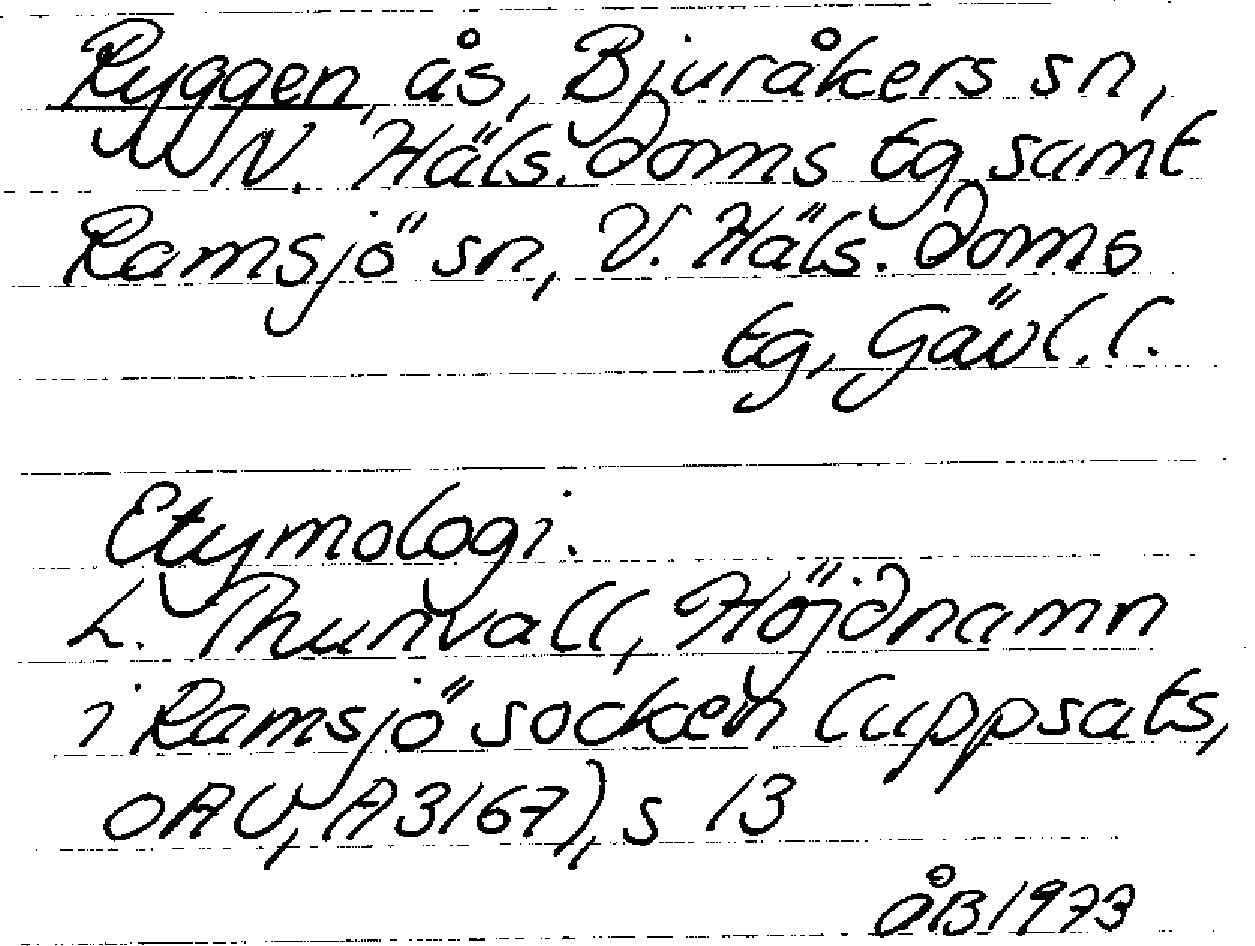 Ryggen, ås, Bjuråkers sn,
N. Häls. doms tg samt
Ramsjö sn, V. Häls. doms
tg, Gävl. l.
Etymologi.
L. Thunvall, Höjdnamn
i Ramsjö socken (uppsats,
OAU, A3167), s 13
ÅB 1973